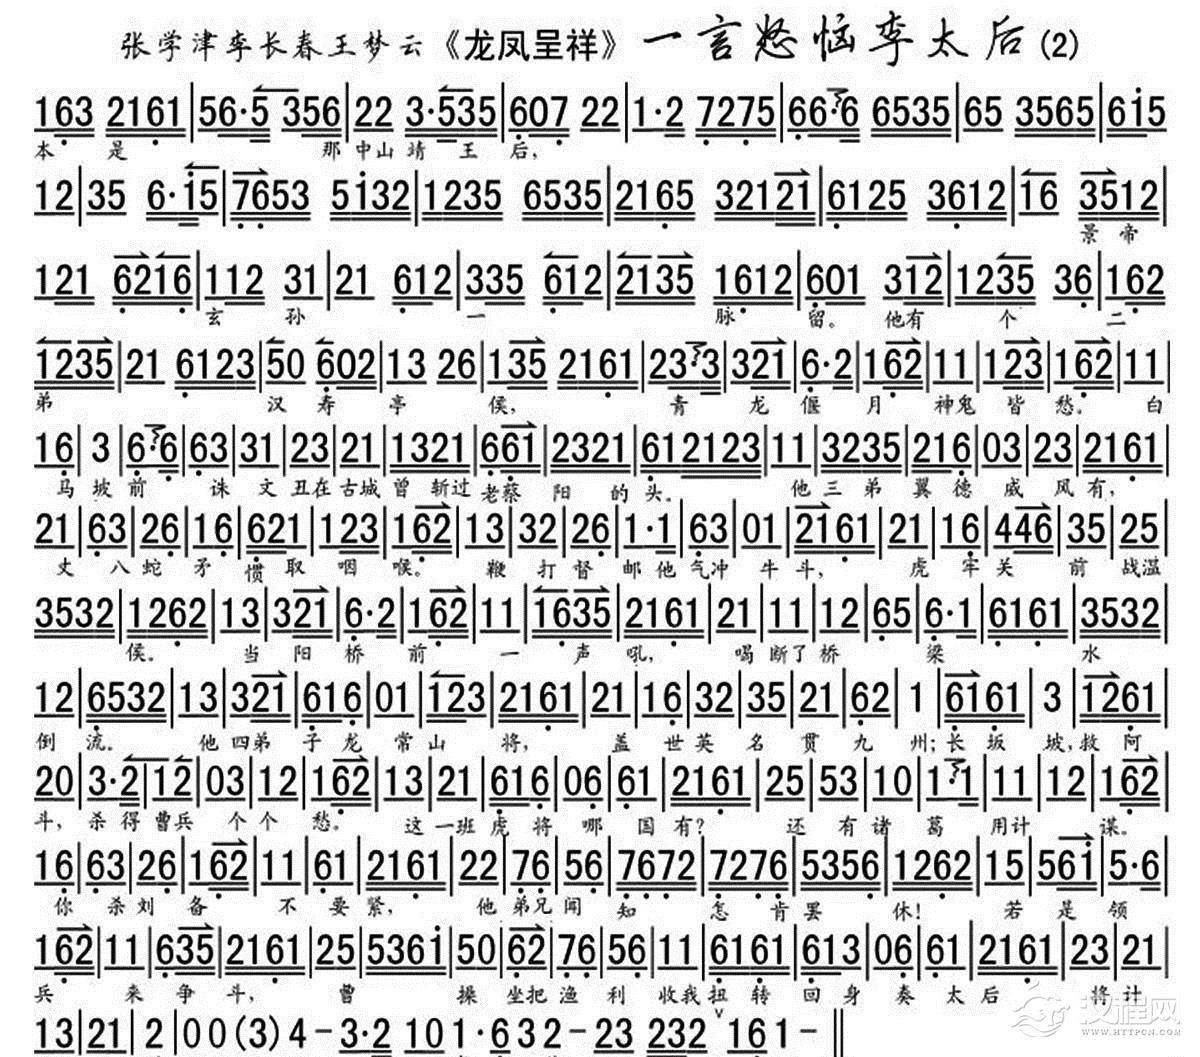 张学津李长春王梦云《龙凤呈祥》一言怒恼李太后(2)
163 2161|56·5 356|22 3·535|607 22|1·2 7275|66·6 6535|65 3565|6i5
本 是 那中山靖王后,
12|35 6·i5|7653 5i32|1235 6535|2165 32121|6125 3612|16 3512|
景帝
121 6216|112 31|21 612|335 612|2135 1612|601 312|1235 36|162|
玄 孙 一 脉 留。 他有 个 二
1235|21 6123|50 602|13 26|135 2161|23·3|321|6·2|162|11|123|162|11|
弟 汉 寿 亭 侯, 青 龙 偃 月 神鬼 皆 愁。 白
16|3|6·6|63|31|23|21|1321|661|2321|612123|11|3235|216|03|23|2161|
马 坡 前 诛 文 丑在 古城 曾 斩过 老蔡 阳 的 头。 他 三 弟 翼 德 威 风 有,
21|63|26|16|621|123|162|13|32|26|1·1|63|01|2161|21|16|446|35|25|
丈 八 蛇 矛 惯 取 咽 喉。 鞭 打 督 邮 他 气冲 牛 斗, 虎 牢 关 前 战温
3532|1262|13|321|6·2|162|11|1635|2161|21|11|12|65|6·1|6161|3532|
侯。 当 阳 桥 前 一 声 吼, 喝 断了 桥 梁 水
12|6532|13|321|616|01|123|2161|21|16|32|35|21|62|1|6161|3|1261|
倒 流。 他 四弟 子 龙 常 山 将, 盖 世 英 名 贯 九 州;长 坂 坡,救 阿
20|3·2|12|03|12|162|13|21|616|06|61|2161|25|53|10|1·1|11|12|162|
斗, 杀 得 曹兵 个 个 愁。 这 一班 虎 将 哪 国 有? 还 有 诸 葛 用计 谋。
16|63|26|162|11|61|2161|22|76|56|7672|7276|5356|1262|15|56i|5·6|
你 杀 刘 备 不 要 紧, 他 弟兄 闻 知 怎 肯 罢 休! 若 是 领
162|11|635|2161|25|536i|50|62|76|56|11|6161|613|06|61|2161|23|21|
兵 来 争 斗, 曹 操 坐把 渔 利 收我 扭 转 回 身 奏 太 后 将 计
13|21|2|00(3)4-3·2 101·632-23 232 v 161-‖
汉程网
WWW.HTTPCN.COM